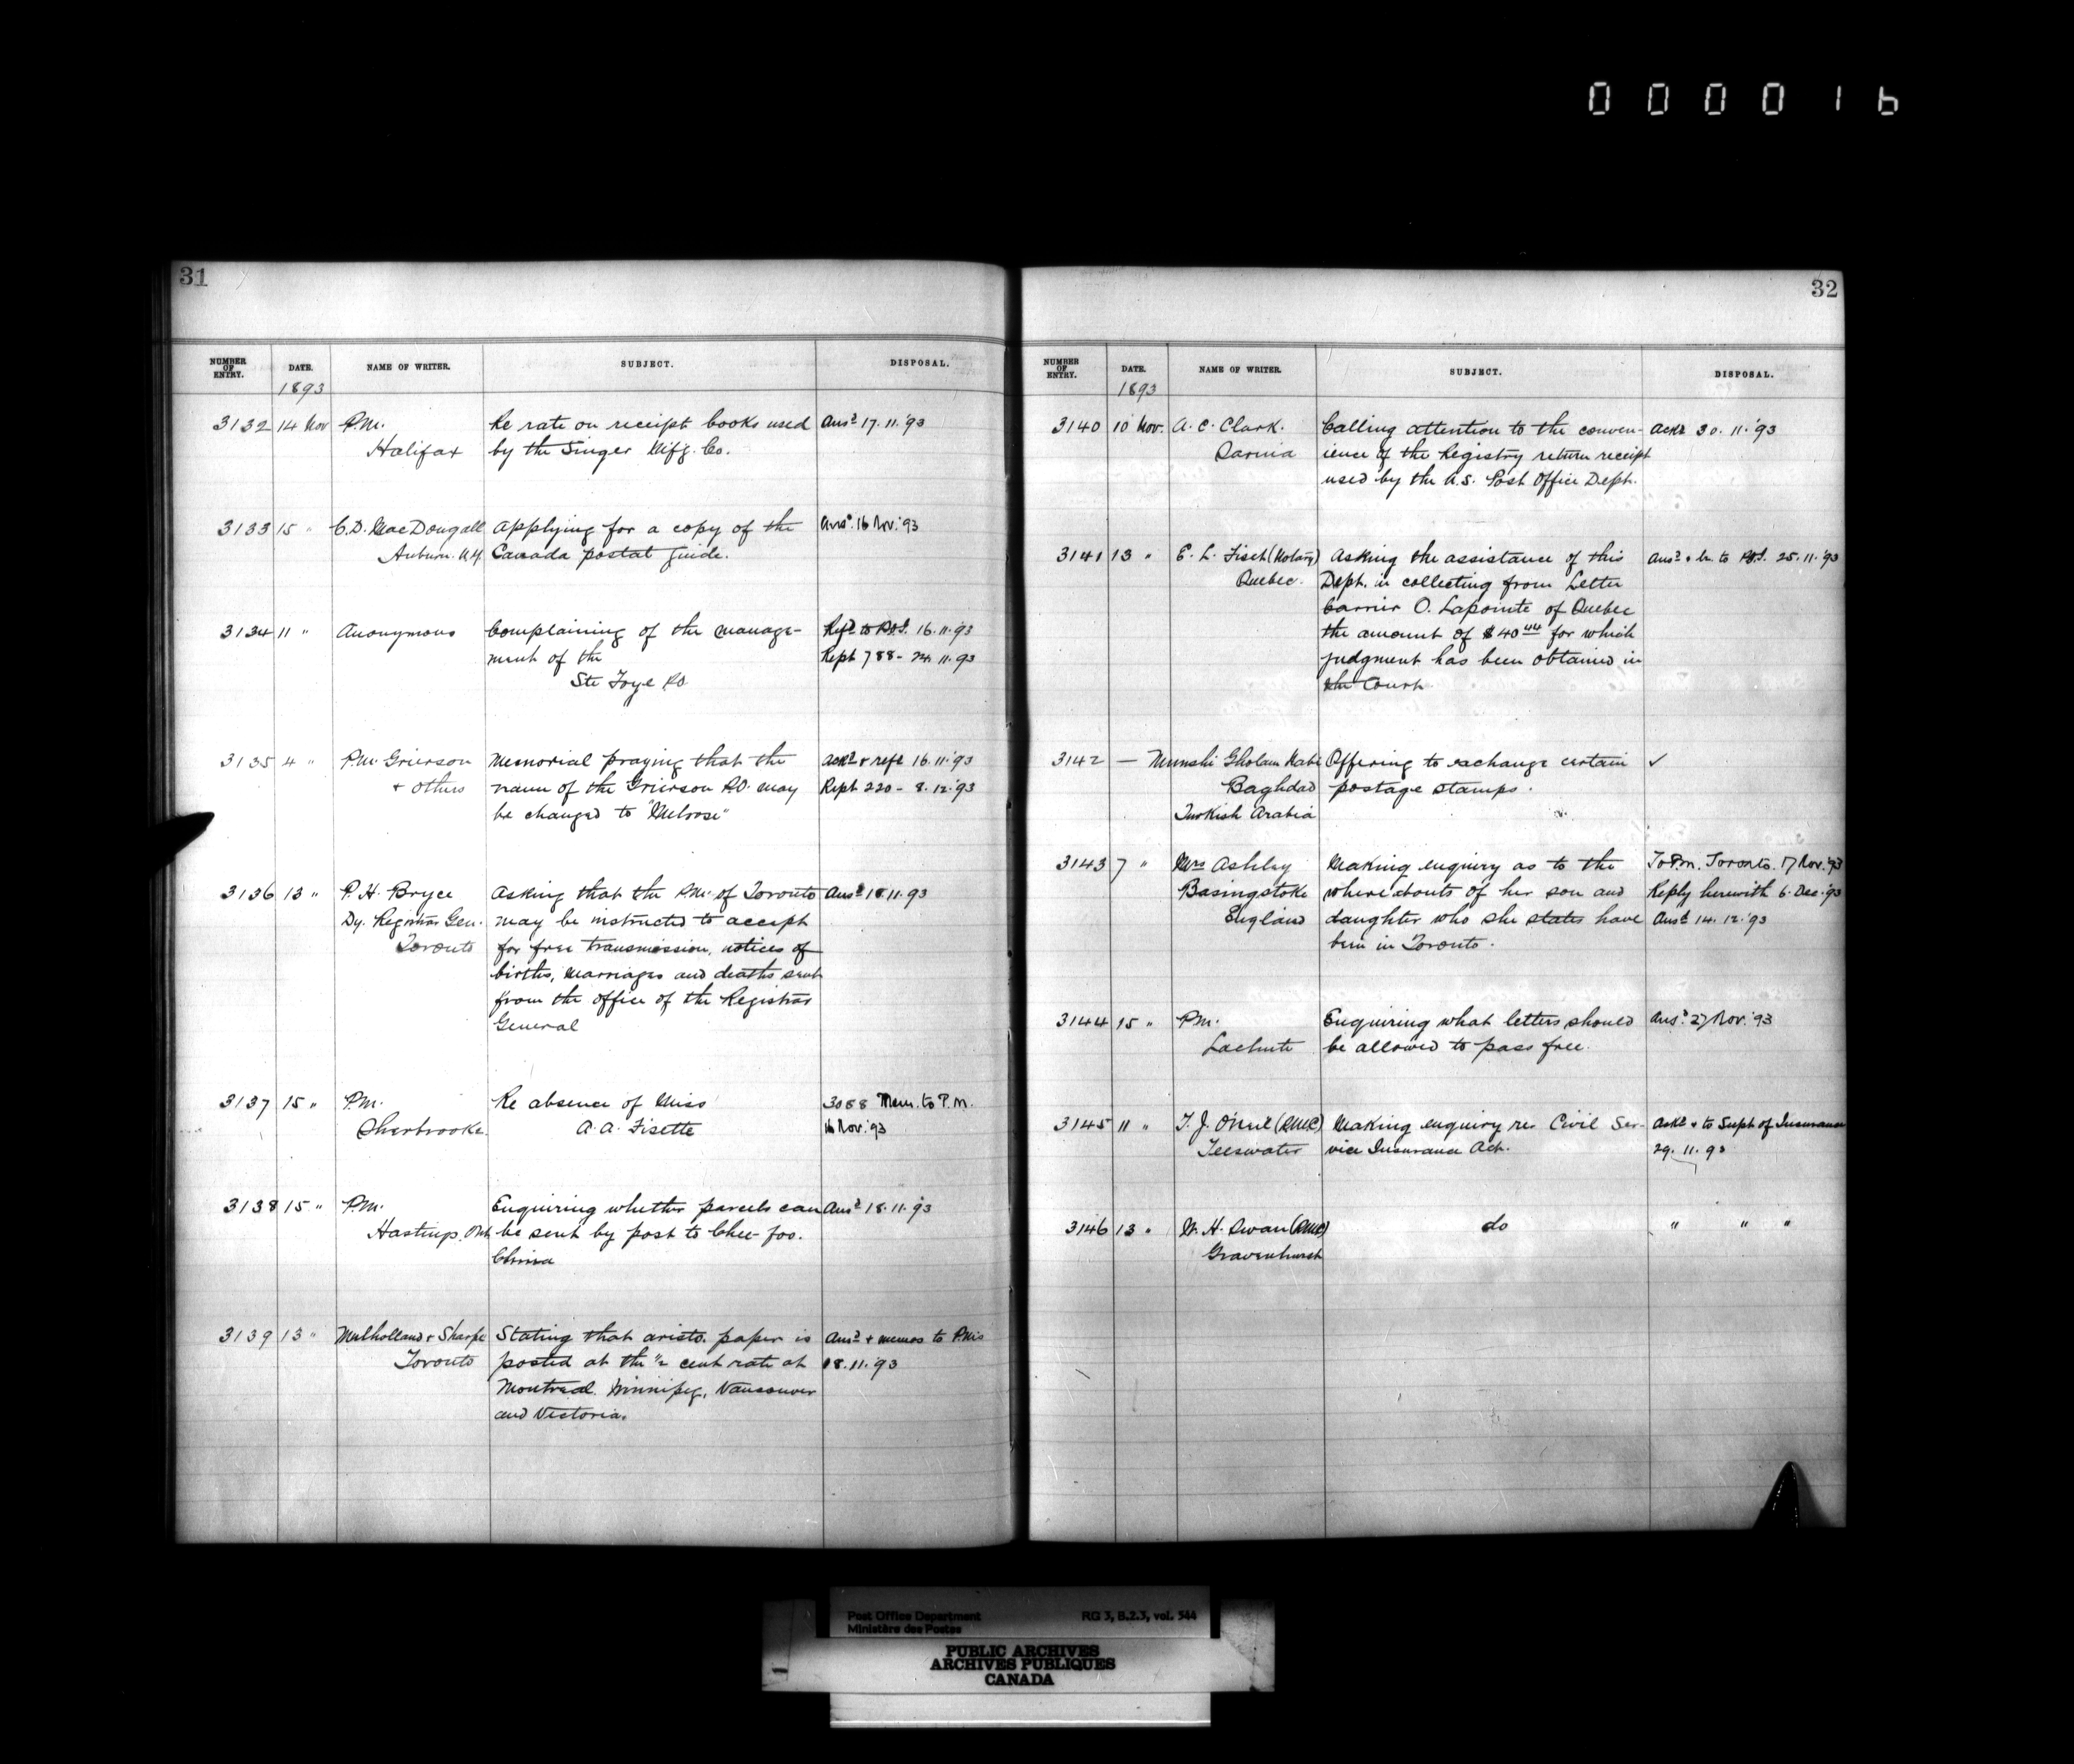 000016
31
NUMBER OF ENTRY. DATE. NAME OF WRITER. SUBJECT. DISPOSAL.
1893
3132 14 Nov P.M. Re rate on receipt books used Ansd 17.11.'93
Halifax by the Singer Mifg. Co.
3133 15 " C.D. MacDougall Applying for a copy of the Ansd. 16 Nov. '93
Auburn. N.Y. Canada postal guide.
3134 11 " Anonymous Complaining of the manage- Refd to P.O.I. 16.11.'93
ment of the Rept 788 - 24.11.93
Ste Foye P.O
3135 4 " P.M. Grierson Memorial praying that the Ackd & refd 16.11.'93
+ others name of the Grierson P.O. may Rept 220 - 8.12.'93
be changed to "Melrose"
3136 13 " P. H. Bryce Asking that the P.M. of Toronto Ansd 18.11.93
Dy. Registrar Gen. may be instructed to accept
Toronto for free transmission, notices of
births, marriages and deaths sent
from the office of the Registrar
General
3137 15 " P.M. Re absence of Miss 3088 Mem. to P.M.
Sherbrooke. A. A. Fisette 16 Nov. '93
3138 15 " P.M. Enquiring whether parcels can Ansd 18.11.93
Hastings. Ont. be sent by post to Chee-foo.
China
3139 13 " Mulholland & Sharpe Stating that aristo. paper is Ansd + memos to P.Ms
Toronto posted at the ½ cent rate at 18.11.'93
Montreal. Winnipeg, Vancouver
and Victoria.
32
NUMBER OF ENTRY. DATE. NAME OF WRITER. SUBJECT. DISPOSAL.
1893
3140 10 Nov. A. C. Clark. Calling attention to the conven- Ackd 30.11.'93
Sarnia ience of the Registry return receipt
used by the U.S. Post Office Dept.
3141 13 " E. L. Fiset (Notary) Asking the assistance of this Ansd & to P.O.I. 25.11.'93
Quebec. Dept. in collecting from Letter
Carrier O. Lapointe of Quebec
the amount of $40 44 for which
judgment has been obtained in
the Court
3142 — Munshi Gholam Nabi Offering to exchange certain ✓
Baghdad postage stamps.
Turkish Arabia
3143 7 " Mrs Ashley Making enquiry as to the To P.M. Toronto. 17 Nov. '93
Basingstoke whereabouts of her son and Reply herewith 6. Dec. '93
England daughter who she states have Ansd 14.12.'93
been in Toronto.
3144 15 " P.M. Enquiring what letters should Ansd. 27 Nov. '93
Lachute be allowed to pass free.
3145 11 " T. J. O'Neil (RMC) Making enquiry re Civil Ser- Ackd & to Supt of Insurance
Teeswater vice Insurance Act. 29.11.93
3146 13 " W. H. Swan (RMC) do " " "
Gravenhurst
Post Office Department RG 3, B.2.3, vol. 544
Ministère des Postes
PUBLIC ARCHIVES
ARCHIVES PUBLIQUES
CANADA